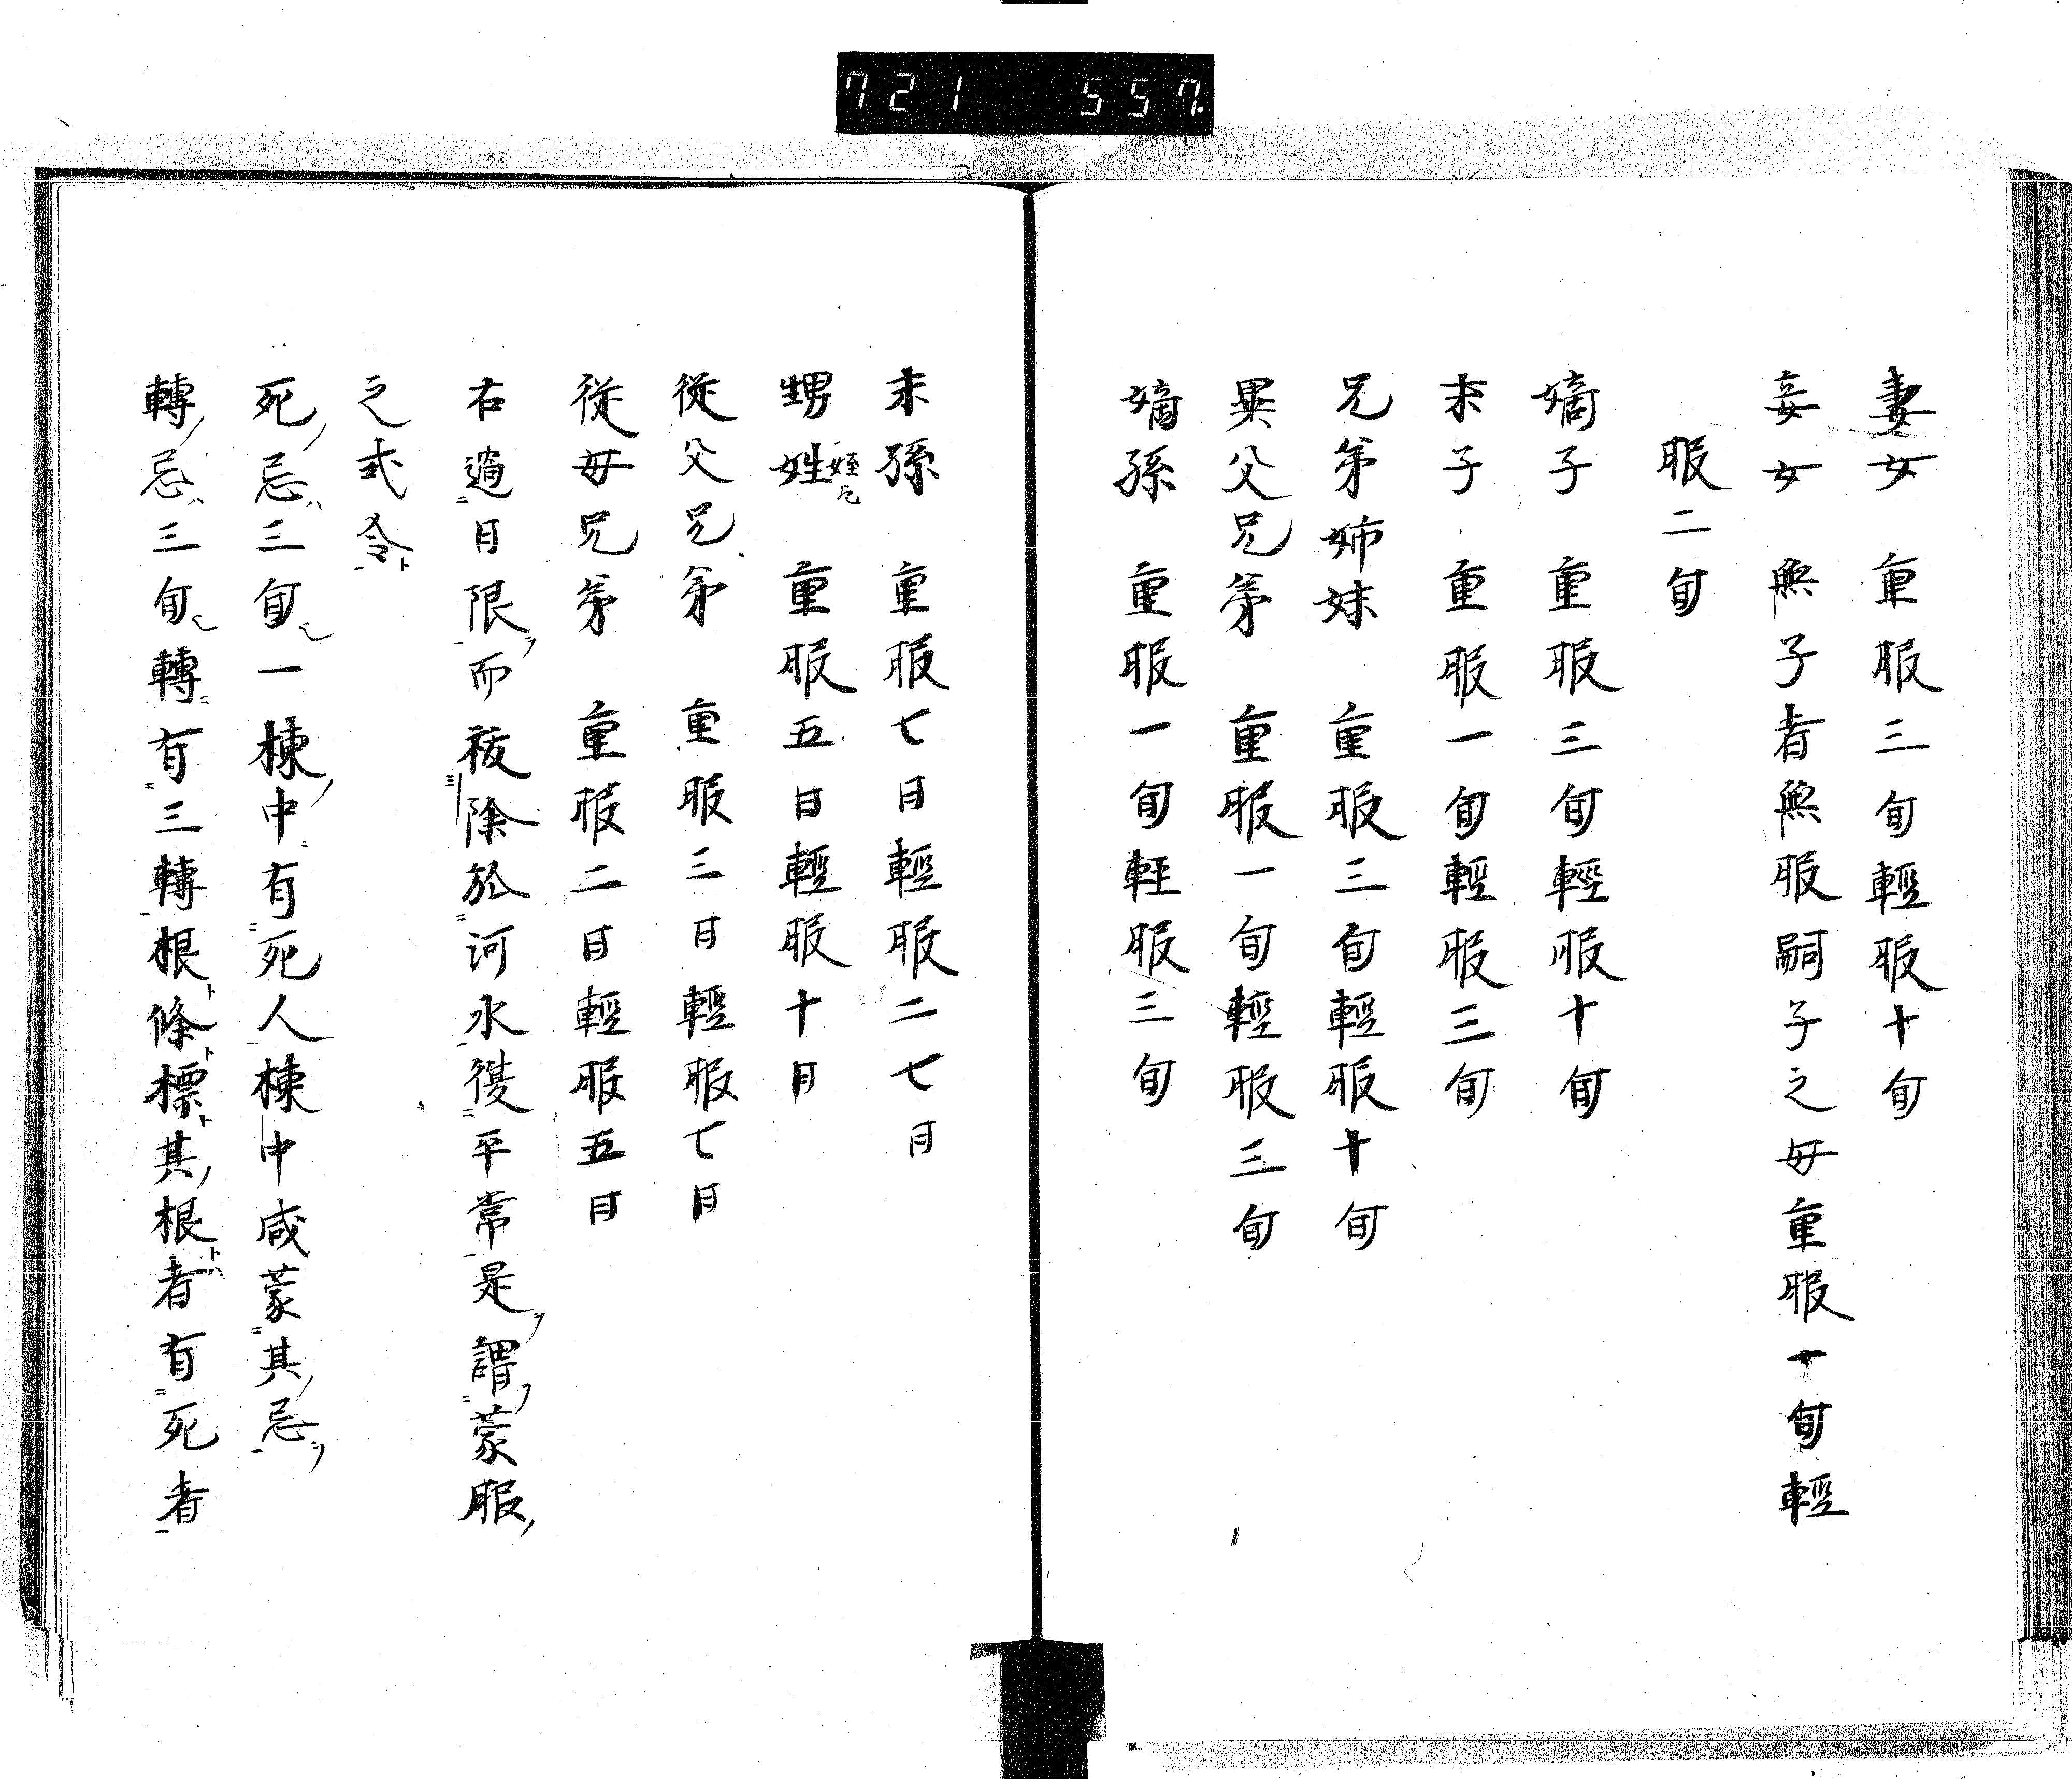 721 557
妻女 重服三旬輕服十旬
妾女 無子者無服嗣子之母重服十旬輕
服二旬
嫡子 重服三旬輕服十旬
末子 重服一旬輕服三旬
兄弟姉妹 重服三旬輕服十旬
異父兄弟 重服一旬輕服三旬
嫡孫 重服一旬輕服三旬
末孫 重服七日輕服二七日
甥姓姪乞 重服五日輕服十日
從父兄弟 重服三日輕服七日
從母兄弟 重服二日輕服五日
右過二日限一ヲ而祓三除於二河水一復二平常一是ヲ謂二ヲ蒙服ノ
之式令一ト
死ノ忌ハ三旬也一棟ノ中二有二死人一棟中咸蒙二其ノ忌一ヲ
轉ノ忌ハ三旬也轉二有二三轉一根ト條ト標ト其ノ根トハ者有二死者一